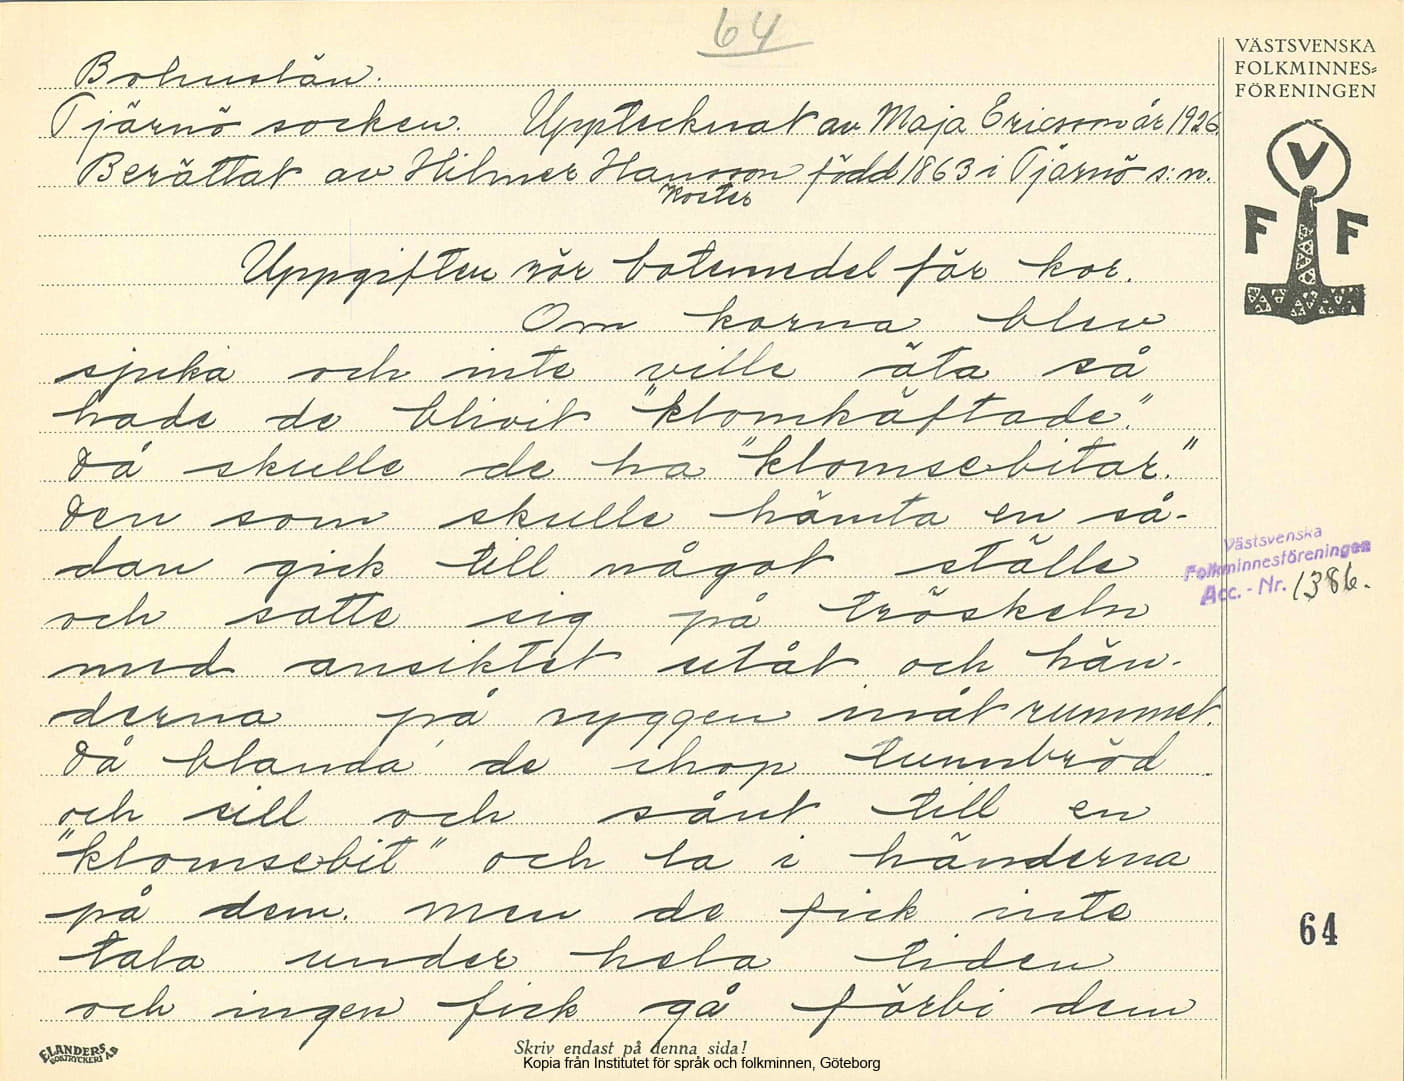 64
VÄSTSVENSKA
FOLKMINNES=
FÖRENINGEN
Bohuslän.
Tjärnö socken. Upptecknat av Maja Ericson år 1926
Berättat av Hilmer Hansson född 1863 i Tjärnö s:n.
Koster
V
F F
Uppgiften rör botemedel för kor.
Om korna blev
sjuka och inte ville äta så
hade de blivit "klomkäftade".
Då skulle de ha "klomsebitar."
Den som skulle hämta en så-
dan gick till något ställe
och satte sig på tröskeln
med ansiktet utåt och hän-
derna på ryggen inåt rummet.
Då blanda' de ihop tunnbröd
och sill och sånt till en
"klomsebit" och la i händerna
på dem. Men de fick inte
tala under hela tiden
och ingen fick gå förbi dem
Västsvenska
Folkminnesföreningen
Acc.-Nr. 1386.
64
ELANDERS
BOKTRYCKERI AB
Skriv endast på denna sida!
Kopia från Institutet för språk och folkminnen, Göteborg